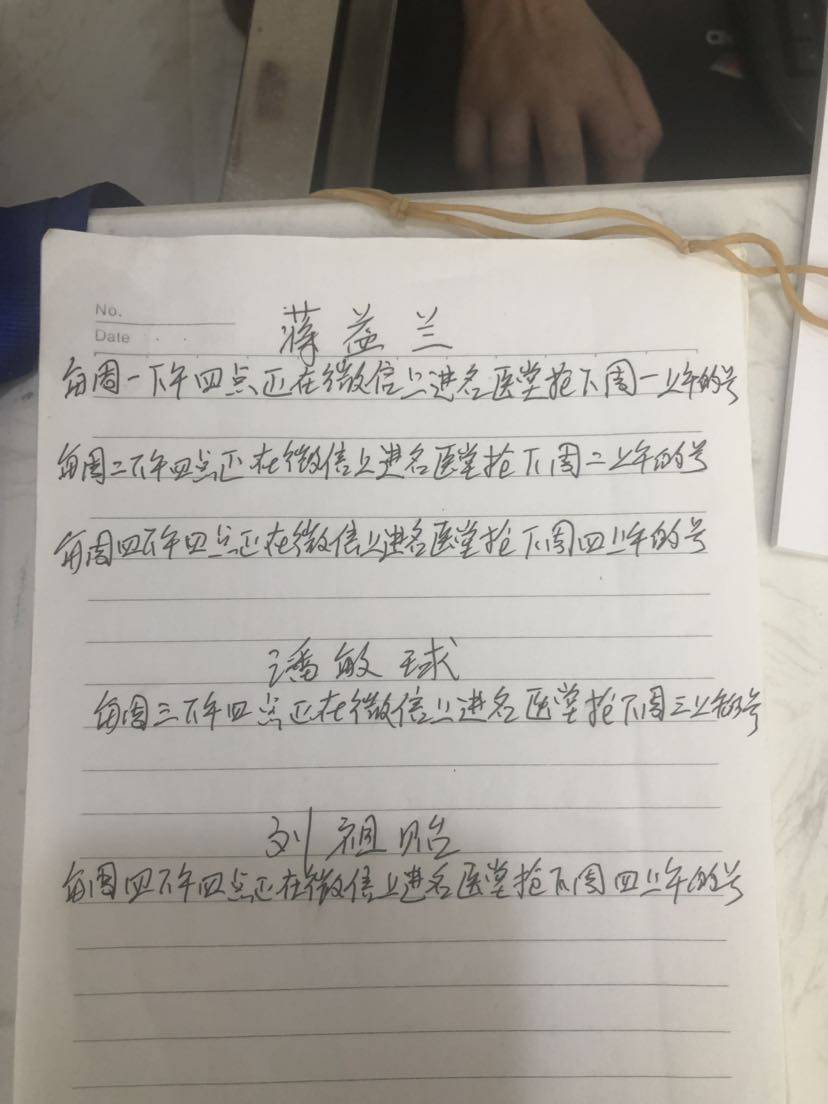 No.
Date
蒋益兰
每周一下午四点正在微信上进名医堂抢下周一上午的号
每周二下午四点正在微信上进名医堂抢下周二上午的号
每周四下午四点正在微信上进名医堂抢下周四上午的号
潘敏球
每周三下午四点正在微信上进名医堂抢下周三上午的号
刘祖贻
每周四下午四点正在微信上进名医堂抢下周四上午的号